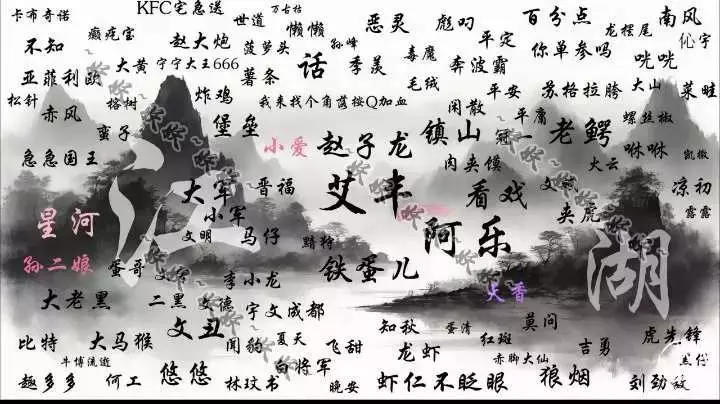 卡布奇诺 KFC宅急送 万古枯
不知 癫疙宝 赵大炮 世道 懒懒 恶灵 彪叼 百分点 龙摆尾 南风
菠萝头 孙峰 毒魔 平定 你单参吗 化宇
亚菲利欧 大黄 宁宁大王666 薯条 话 季羡 奔波霸 咣咣
松针 榕树 炸鸡 我来找个角落按Q加血 毛绒 平安 苏格拉胯 大山 菜畦
赤风 蛮子 堡垒 闲散 平庸 螺丝椒
急急国王 小爱 赵子龙 镇山 冠一 老鳄 咻咻 凯撒
肉夹馍 火云
大军 晋福 艾丰 看戏 文 夹虎 凉初
星河 江 小军 阿乐 湖 露露
文明 马仔 黯特
孙二娘 蛋哥 文 李小龙 铁蛋儿 天香
大老黑 二黑 文德 宇文成都
文丑 知秋 蛋清 莫问
比特 大马猴 闻豹 夏天 飞甜 龙虾 红斑 吉勇 虎先锋
牛博流逝 白将军 赤脚大仙 杰仔
趣多多 何工 悠悠 林玟书 晚安 虾仁不眨眼 狼烟 刘劲敌